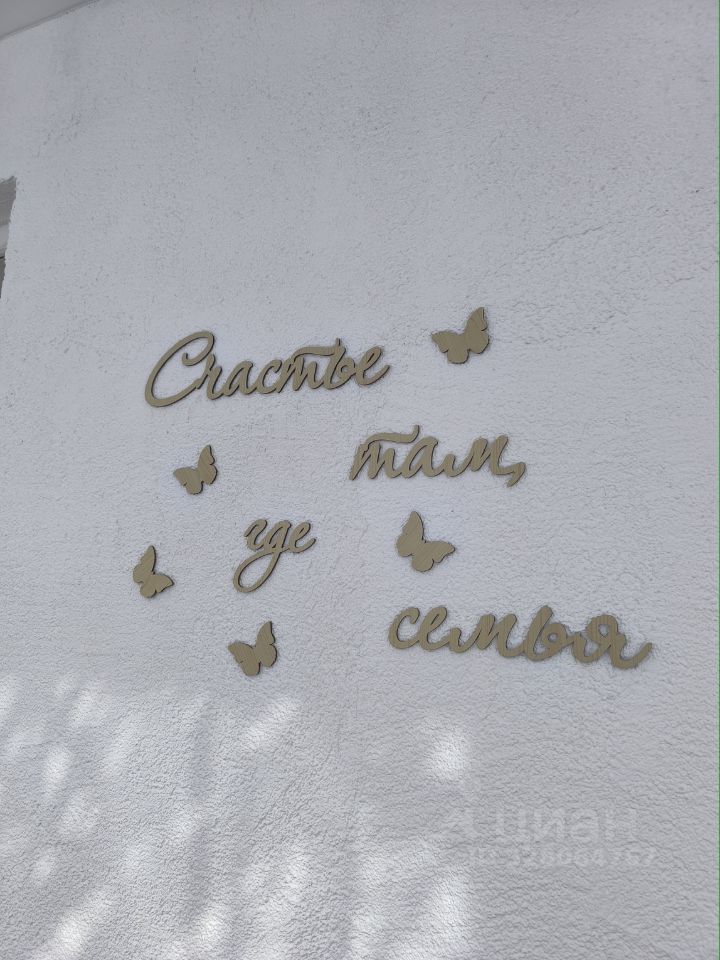 Счастье
там,
где
семья
циан